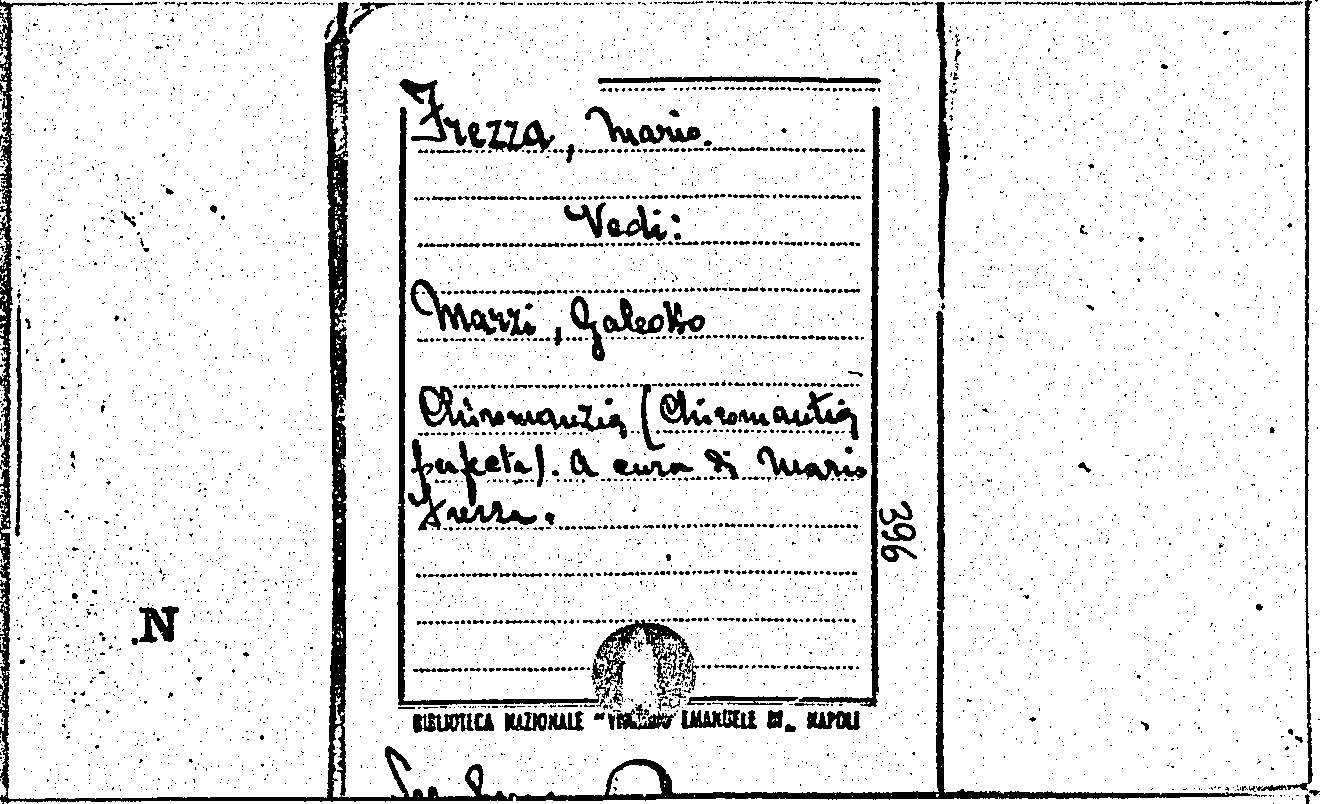 Frezza, Mario.
Vedi:
Marzi, Galeotto
Chiromanzia (Chiromantia
perfecta). A cura di Mario
Frezza.
396
.N
BIBLIOTECA NAZIONALE "VITTORIO EMANUELE III" NAPOLI